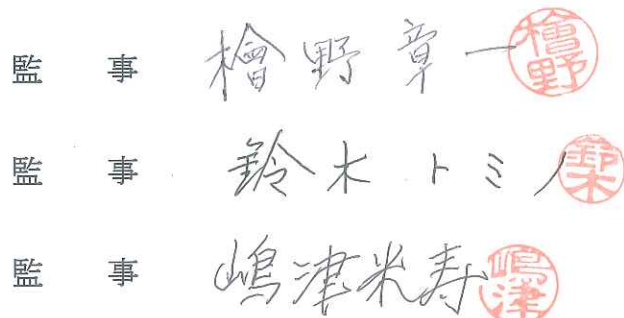 監 事 檜野章一 檜野
監 事 鈴木トミノ 鈴木
監 事 嶋津米寿 嶋津